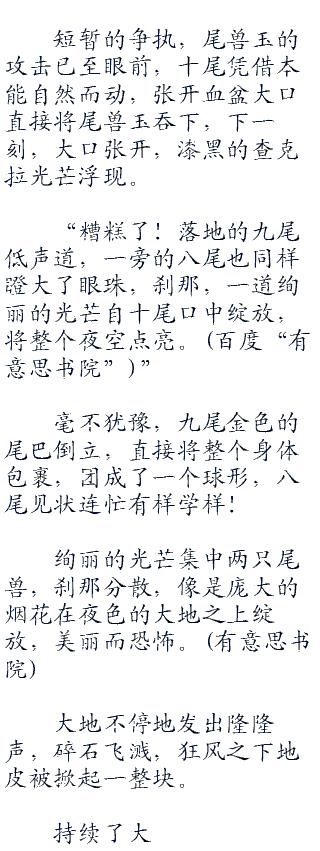 短暂的争执，尾兽玉的
攻击已至眼前，十尾凭借本
能自然而动，张开血盆大口
直接将尾兽玉吞下，下一
刻，大口张开，漆黑的查克
拉光芒浮现。
“糟糕了！落地的九尾
低声道，一旁的八尾也同样
瞪大了眼珠，刹那，一道绚
丽的光芒自十尾口中绽放，
将整个夜空点亮。(百度“有
意思书院”)”
毫不犹豫，九尾金色的
尾巴倒立，直接将整个身体
包裹，团成了一个球形，八
尾见状连忙有样学样！
绚丽的光芒集中两只尾
兽，刹那分散，像是庞大的
烟花在夜色的大地之上绽
放，美丽而恐怖。(有意思书
院)
大地不停地发出隆隆
声，碎石飞溅，狂风之下地
皮被掀起一整块。
持续了大